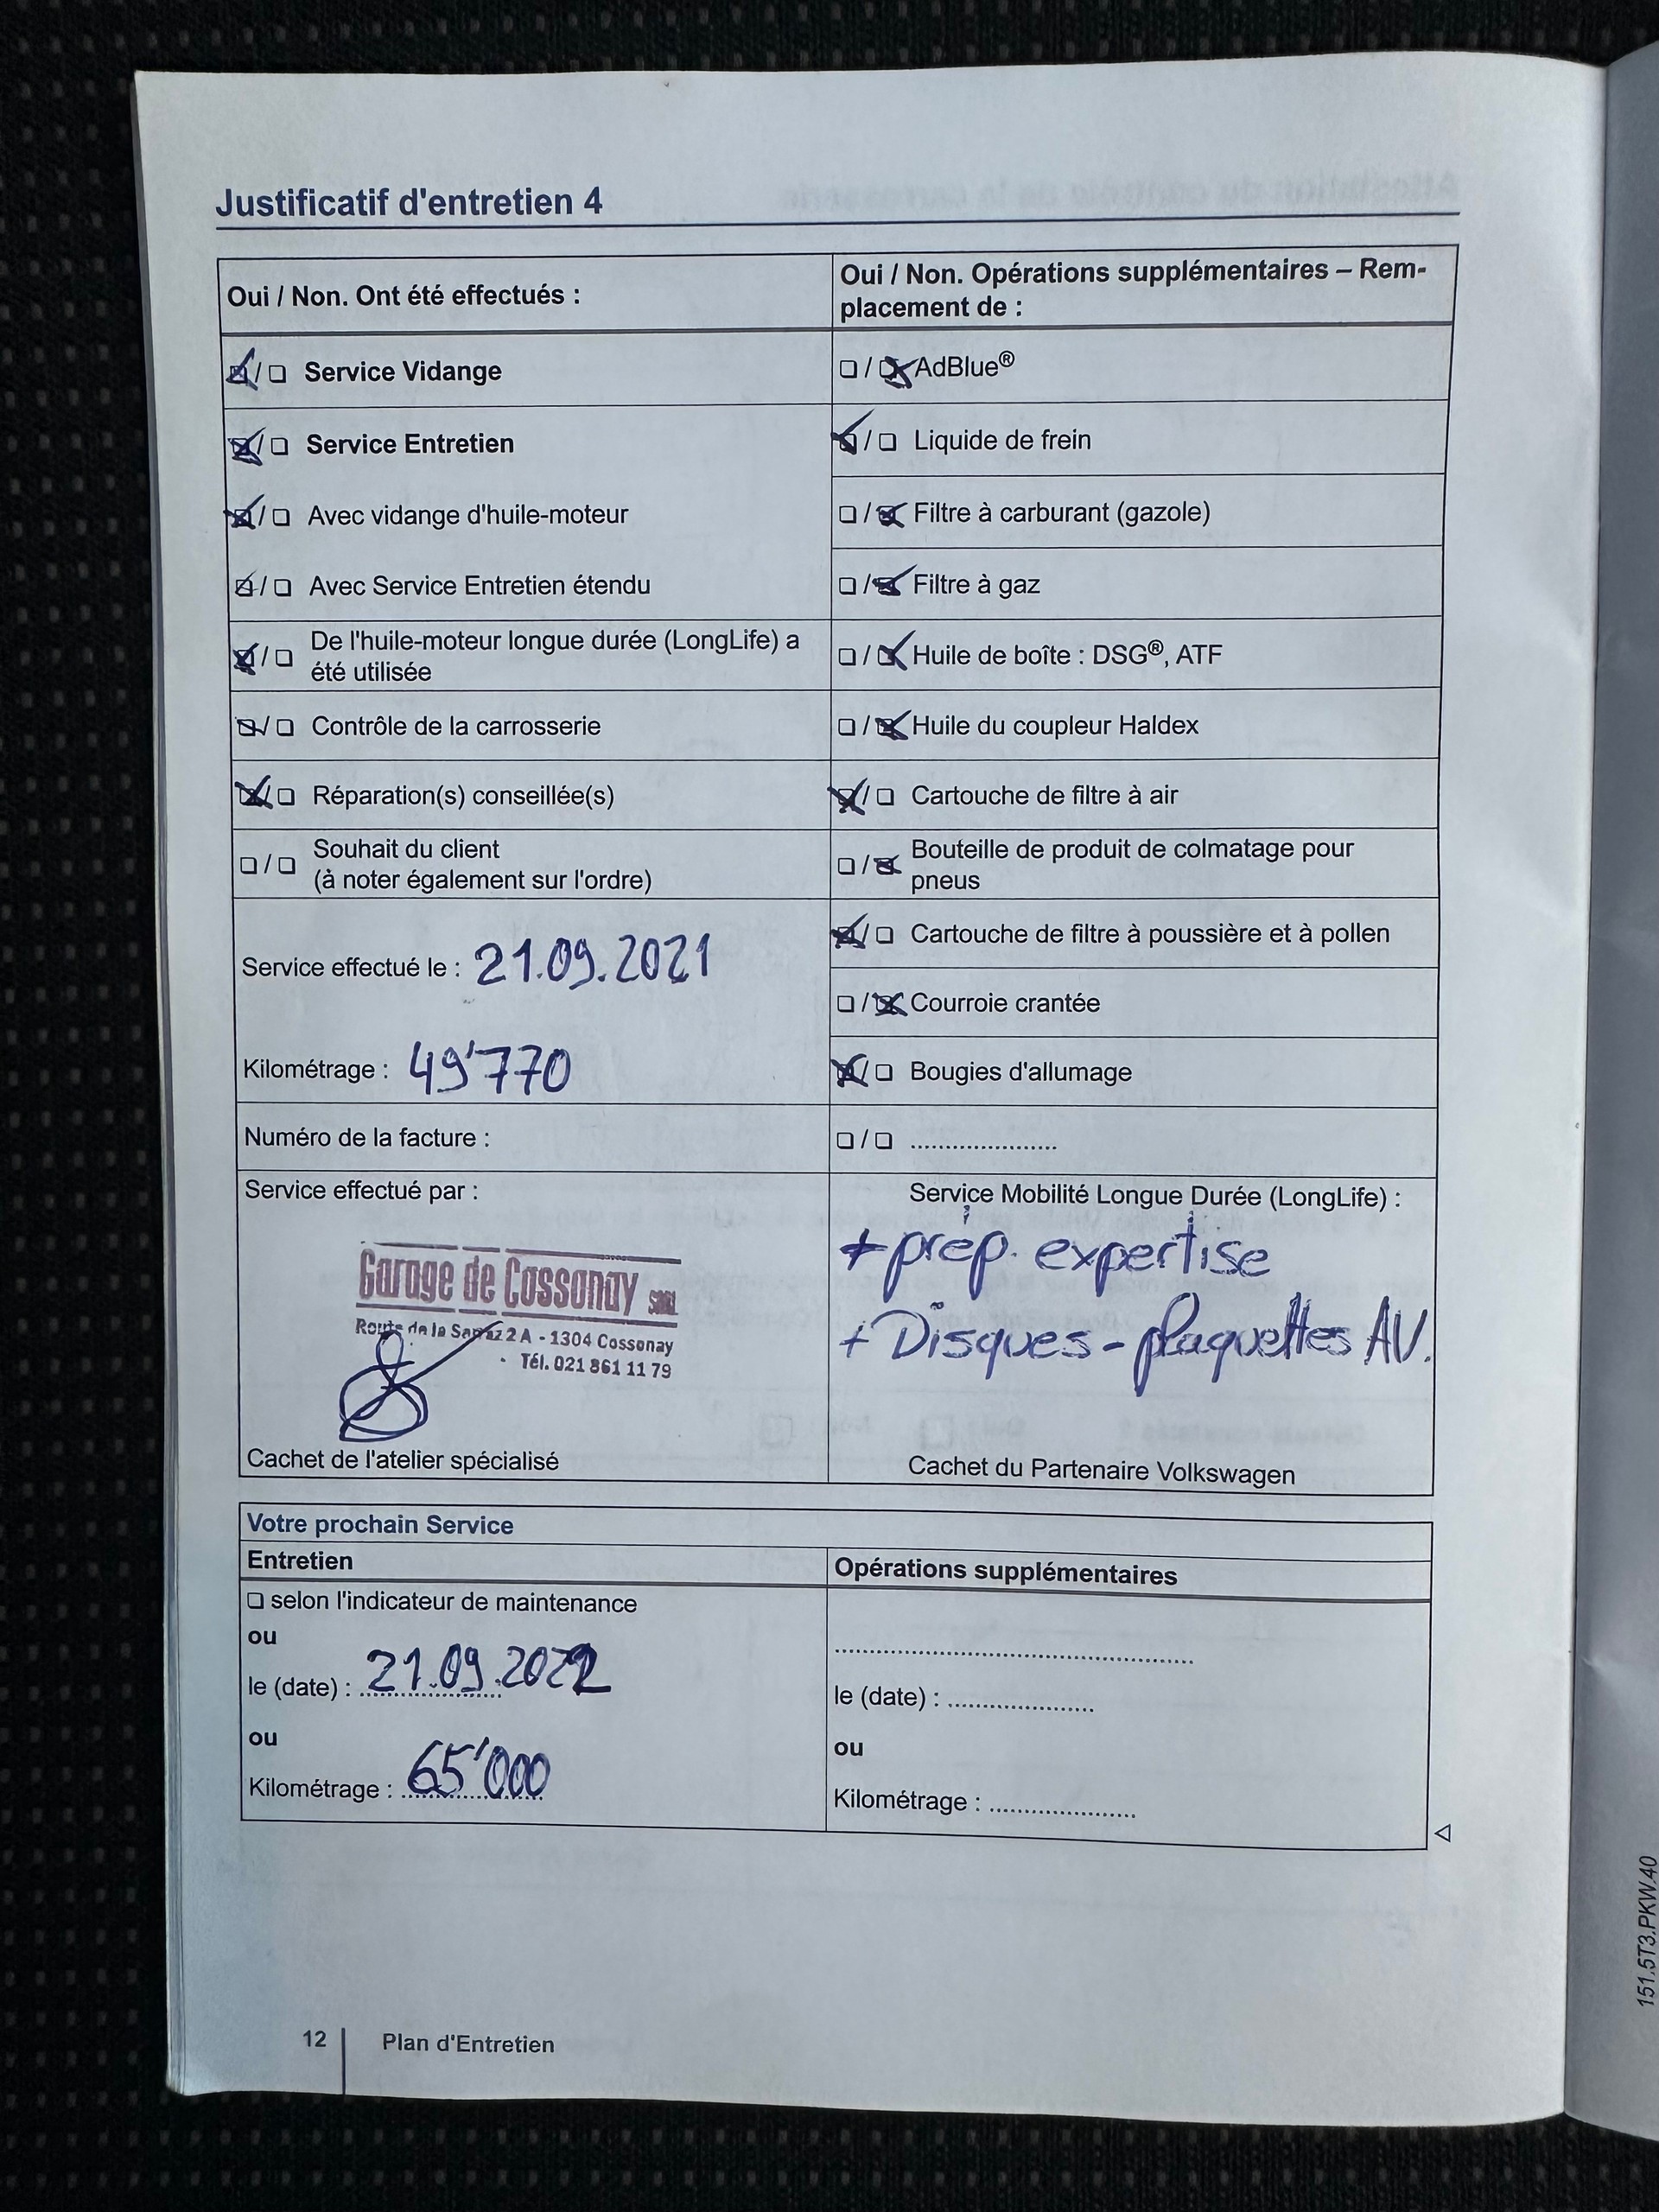 Justificatif d'entretien 4
Oui / Non. Ont été effectués :
☒/❏ Service Vidange
☒/❏ Service Entretien
☒/❏ Avec vidange d'huile-moteur
☒/❏ Avec Service Entretien étendu
☒/❏ De l'huile-moteur longue durée (LongLife) a
été utilisée
☒/❏ Contrôle de la carrosserie
☒/❏ Réparation(s) conseillée(s)
❏/❏ Souhait du client
(à noter également sur l'ordre)
Service effectué le : 21.09.2021
Kilométrage : 49'770
Numéro de la facture :
Service effectué par :
Garage de Cossonay SARL
Route de la Sarraz 2 A - 1304 Cossonay
Tél. 021 861 11 79
Cachet de l'atelier spécialisé
Oui / Non. Opérations supplémentaires – Rem-
placement de :
❏/☒ AdBlue®
☒/❏ Liquide de frein
❏/☒ Filtre à carburant (gazole)
❏/☒ Filtre à gaz
❏/☒ Huile de boîte : DSG®, ATF
❏/☒ Huile du coupleur Haldex
☒/❏ Cartouche de filtre à air
❏/☒ Bouteille de produit de colmatage pour
pneus
☒/❏ Cartouche de filtre à poussière et à pollen
❏/☒ Courroie crantée
☒/❏ Bougies d'allumage
❏/❏ .....................
Service Mobilité Longue Durée (LongLife) :
+ prép. expertise
+ Disques - plaquettes AV.
Cachet du Partenaire Volkswagen
Votre prochain Service
Entretien
❏ selon l'indicateur de maintenance
ou
le (date) : 21.09.2022
ou
Kilométrage : 65'000
Opérations supplémentaires
le (date) : .....................
ou
Kilométrage : .....................
12 Plan d'Entretien
151.5T3.PKW.40